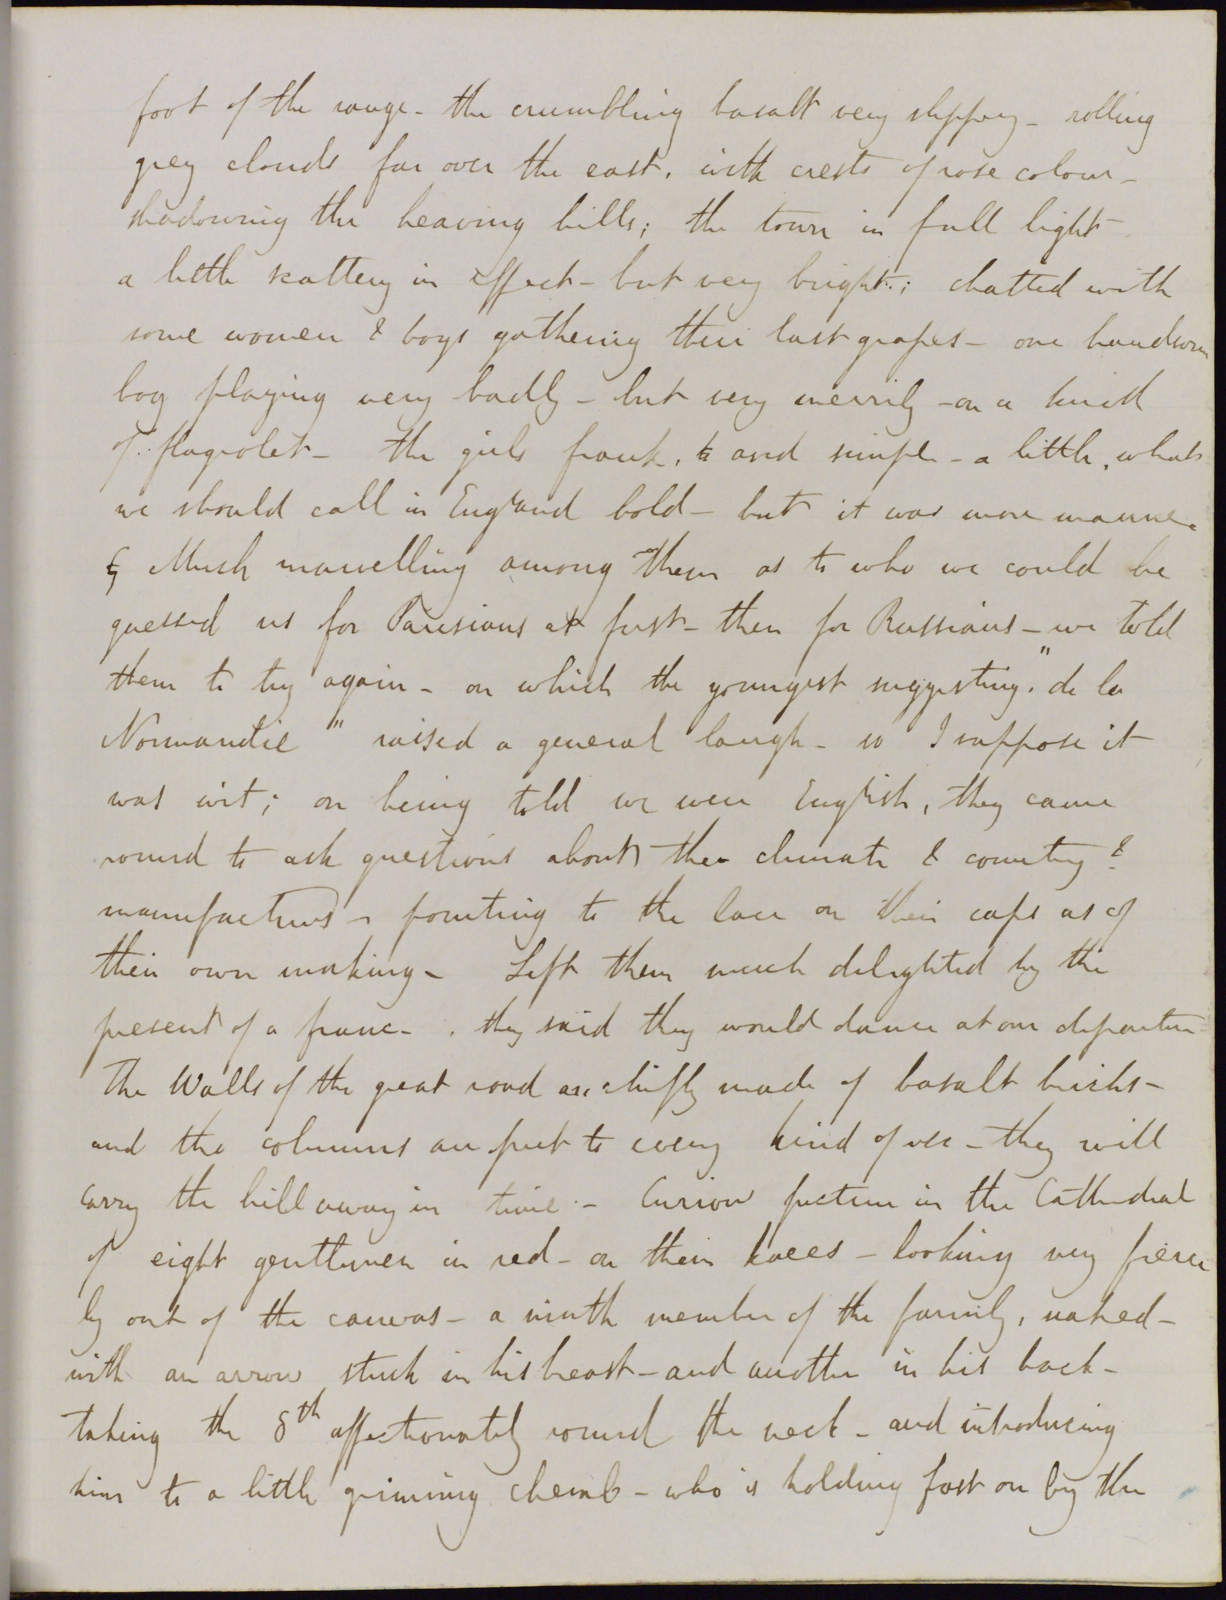 foot of the range - the crumbling basalt very slippery - rolling
grey clouds far over the east, with crests of rose colour -
shadowing the heaving hills; the town in full light -
a little scattery in effect - but very bright.; chatted with
some women & boys gathering their last grapes - one handsome
boy playing very badly - but very merrily - on a kind
of flageolet - the girls frank, and simple - a little, what
we should call in England bold - but it was mere manner
Much marvelling among them as to who we could be
guessed us for Parisians at first - then for Russians - we told
them to try again - on which the youngest suggesting "de la
Normandie" raised a general laugh - so I suppose it
was wit; on being told we were English, they came
round to ask questions about the climate & country &
manufactures - pointing to the lace on their caps as of
their own making - Left them much delighted by the
present of a franc - , they said they would dance at our departure
The Walls of the great road are chiefly made of basalt bricks -
and the columns are put to every kind of use - they will
carry the hill away in time. - Curious picture in the Cathedral
of eight gentlemen in red - on their knees - looking very fierce
ly out of the canvas - a ninth member of the family, naked -
with an arrow stuck in his breast - and another in his back -
taking the 8th affectionately round the neck - and introducing
him to a little grinning cherub - who is holding fast on by the